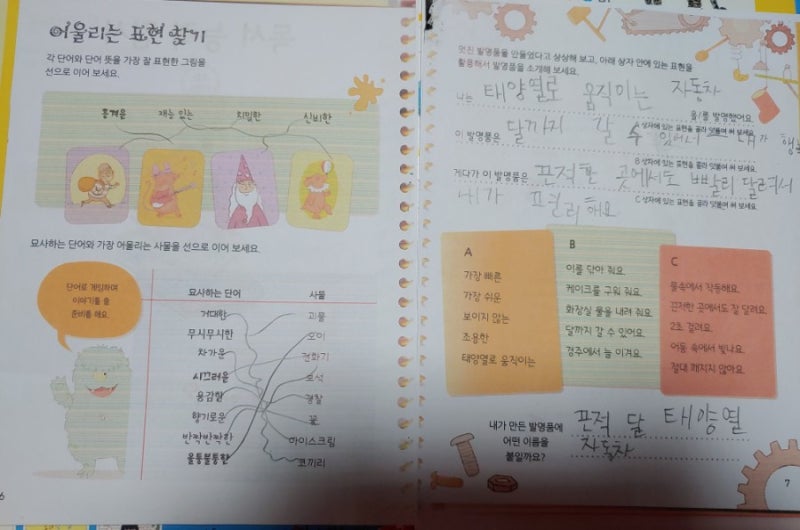 어울리는 표현 찾기
각 단어와 단어 뜻을 가장 잘 표현한 그림을
선으로 이어 보세요.
흥겨운 재능 있는 치밀한 신비한
묘사하는 단어와 가장 어울리는 사물을 선으로 이어 보세요.
단어로 게임하며
이야기를 쓸
준비를 해요.
묘사하는 단어 사물
거대한 괴물
무시무시한 오이
차가운 전화기
시끄러운 보석
용감한 경찰
향기로운 꽃
반짝반짝한 아이스크림
울퉁불퉁한 코끼리
6
멋진 발명품을 만들었다고 상상해 보고, 아래 상자 안에 있는 표현을
활용해서 발명품을 소개해 보세요.
나는 태양열로 움직이는 자동차
을/를 발명했어요.
A 상자에 있는 표현을 골라 덧붙여 써 보세요.
이 발명품은 달까지 갈 수 있어서 내가
B 상자에 있는 표현을 골라 덧붙여 써 보세요.
게다가 이 발명품은 끈적한 곳에서도 빨리 달려서
C 상자에 있는 표현을 골라 덧붙여 써 보세요.
내가 편리해요
A
가장 빠른
가장 쉬운
보이지 않는
조용한
태양열로 움직이는
B
이를 닦아 줘요.
케이크를 구워 줘요.
화장실 물을 내려 줘요.
달까지 갈 수 있어요.
경주에서 늘 이겨요.
C
물속에서 작동해요.
끈적한 곳에서도 잘 달려요.
2초 걸려요.
어둠 속에서 빛나요.
절대 깨지지 않아요.
내가 만든 발명품에
어떤 이름을
붙일까요?
끈적 달 태양열
자동차
7